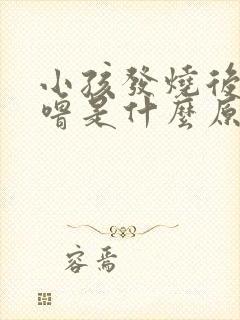 小孩發燒後
嘈是什麼原
容焉